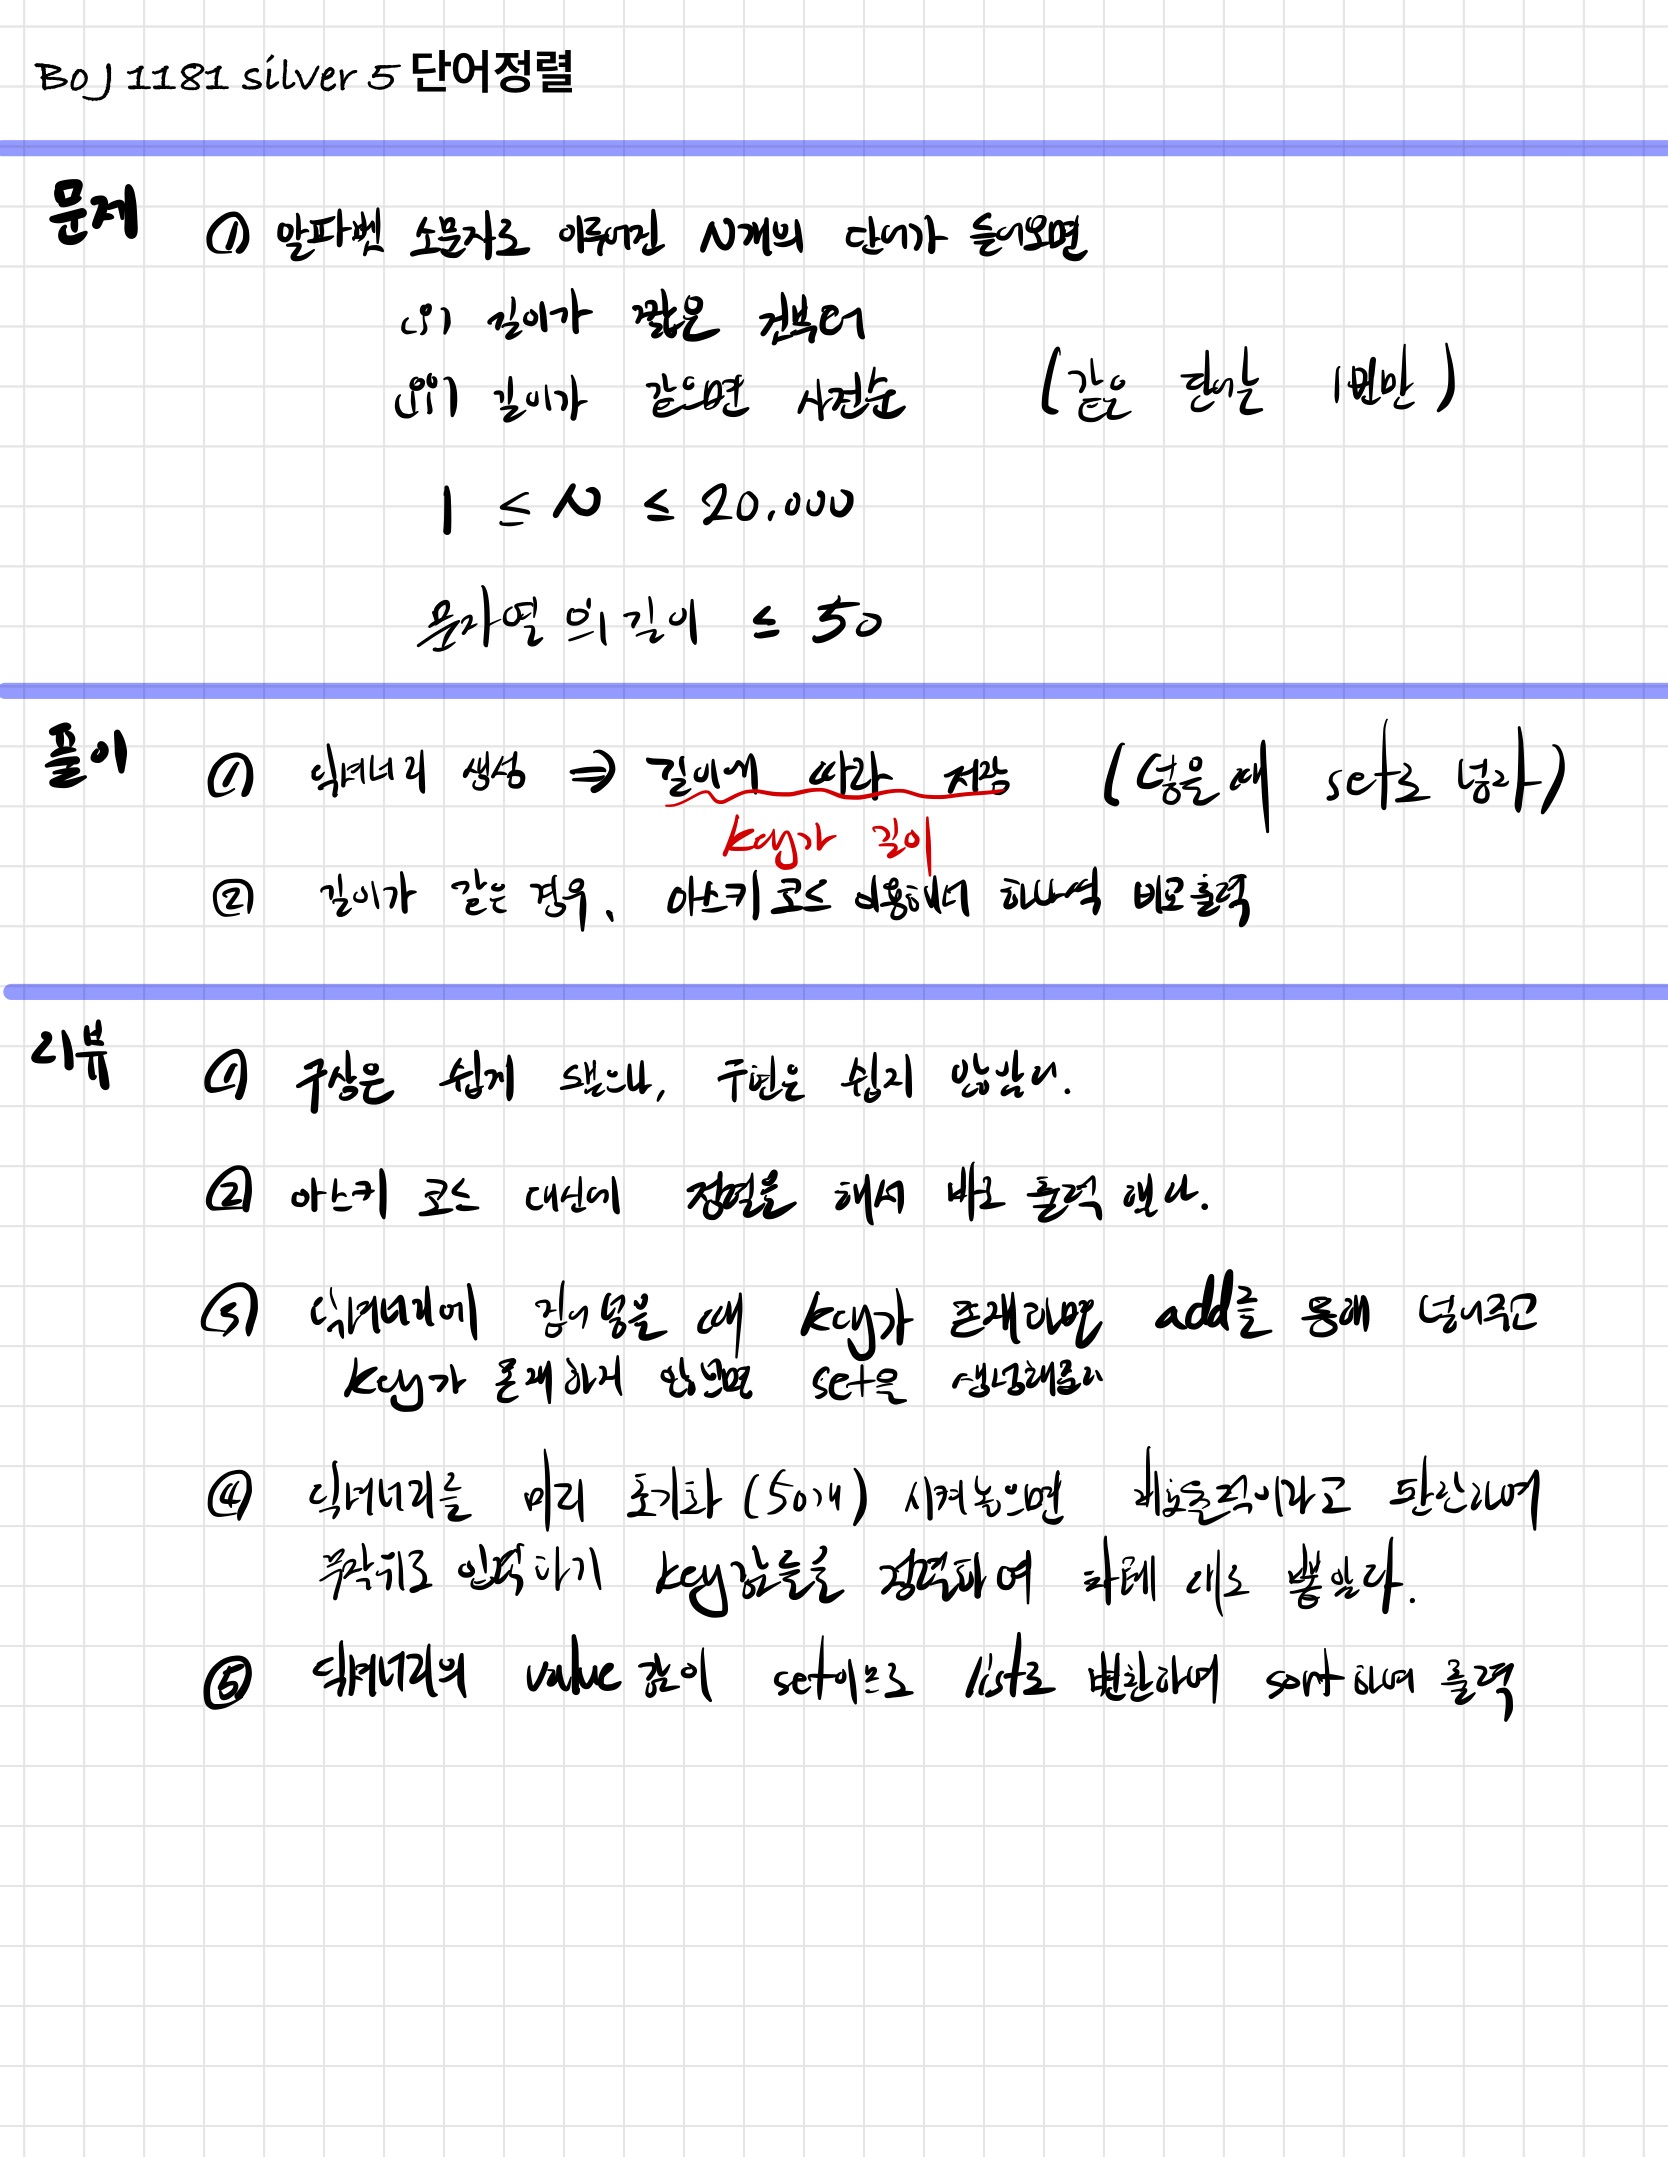 BOJ 1181 silver 5 단어정렬
문제
① 알파벳 소문자로 이루어진 N개의 단어가 들어오면
(i) 길이가 짧은 것부터
(ii) 길이가 같으면 사전순 (같은 단어는 1번만)
1 ≤ N ≤ 20.000
문자열의 길이 ≤ 50
풀이
① 딕셔너리 생성 ⇒ 길이에 따라 저장 (넣을 때 set로 넣자)
key가 길이
② 길이가 같은 경우, 아스키 코드 이용해서 하나씩 비교 출력
리뷰
① 구상은 쉽게 됐으나, 구현은 쉽지 않았다.
② 아스키 코드 대신에 정렬을 해서 바로 출력 했다.
③ 딕셔너리에 집어 넣을 때 key가 존재하면 add를 통해 넣어주고
key가 존재하지 않으면 set을 생성해준다
④ 딕셔너리를 미리 초기화 (50개) 시켜놓으면 비효율적이라고 판단하여
무작위로 입력하기 key값들을 정렬하여 차례대로 뽑았다.
⑤ 딕셔너리의 value 값이 set이므로 list로 변환하여 sort하여 출력